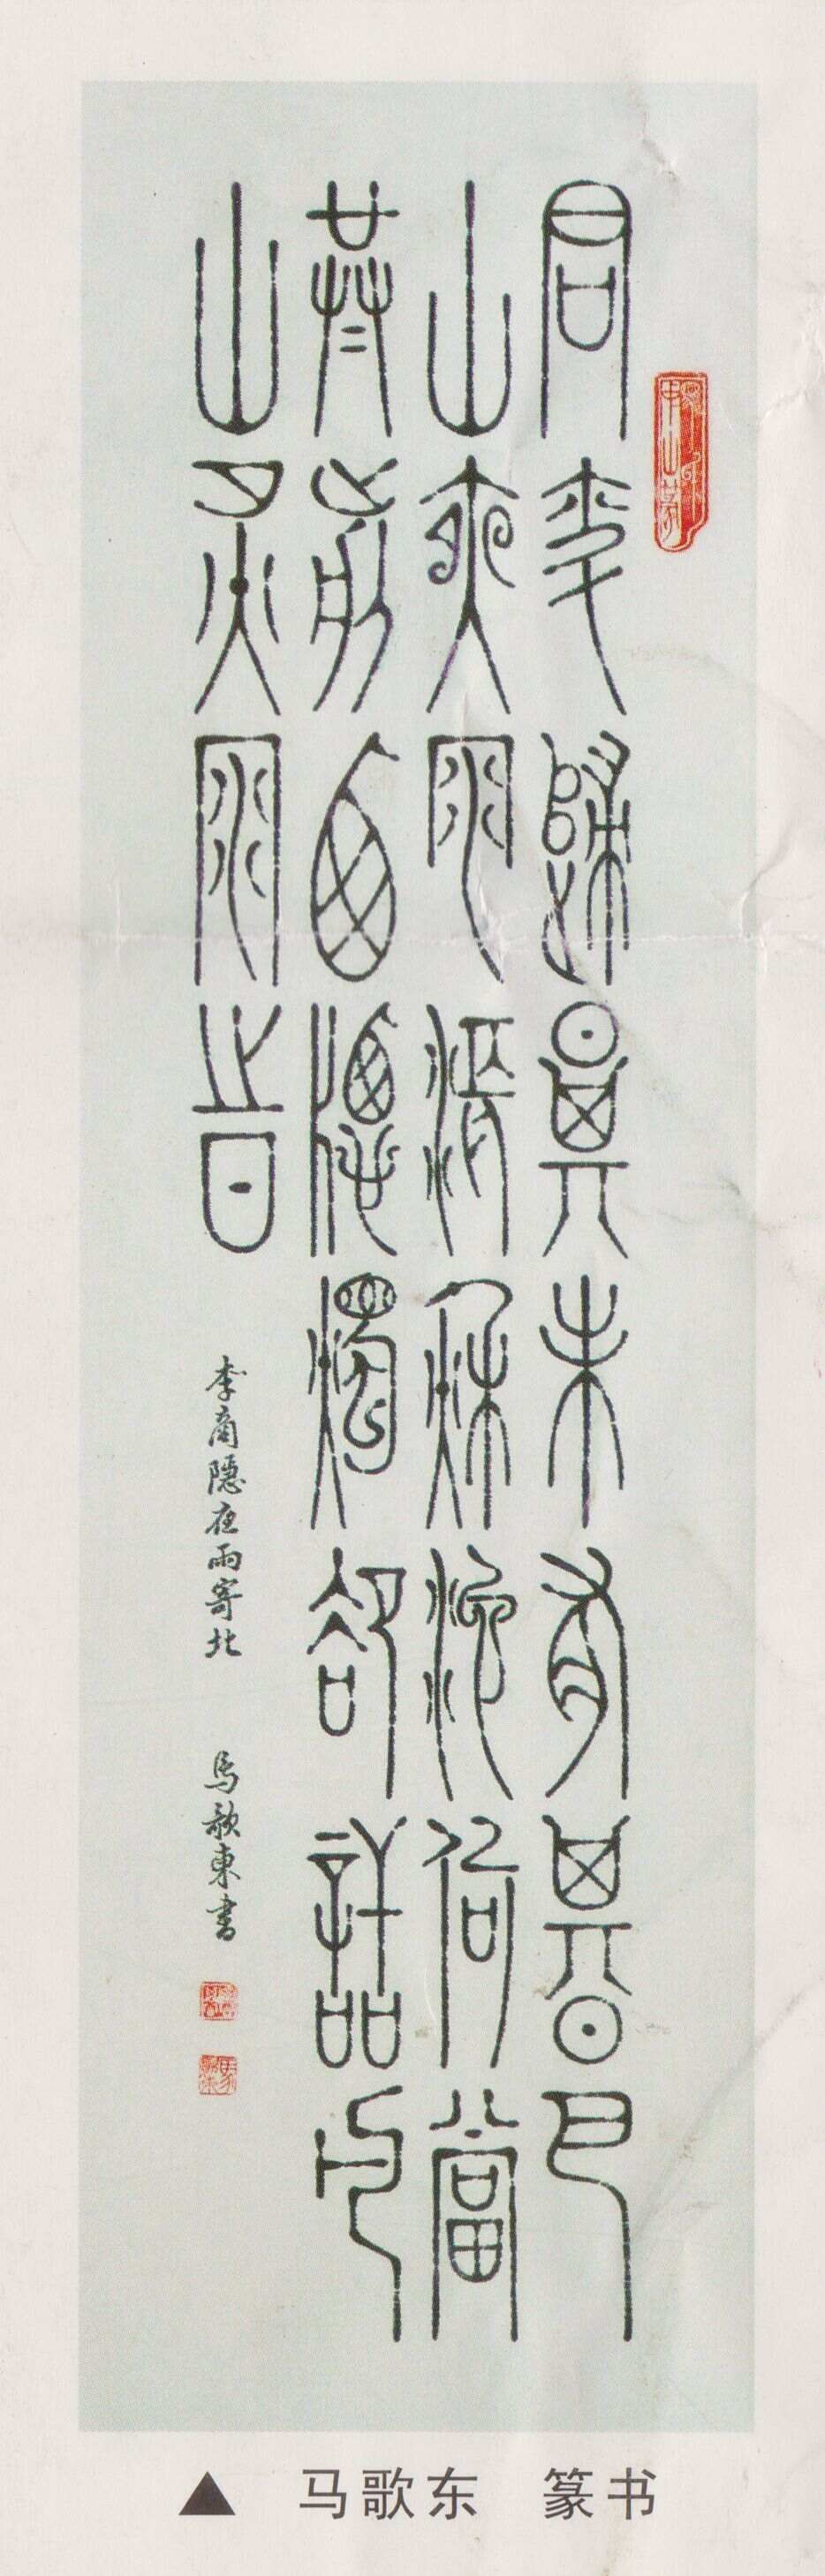 君問歸期未有期巴
山夜雨漲秋池何當
共剪西窗燭却話巴
山夜雨時
李商隱夜雨寄北 馬歌東書
▲ 马歌东 篆书